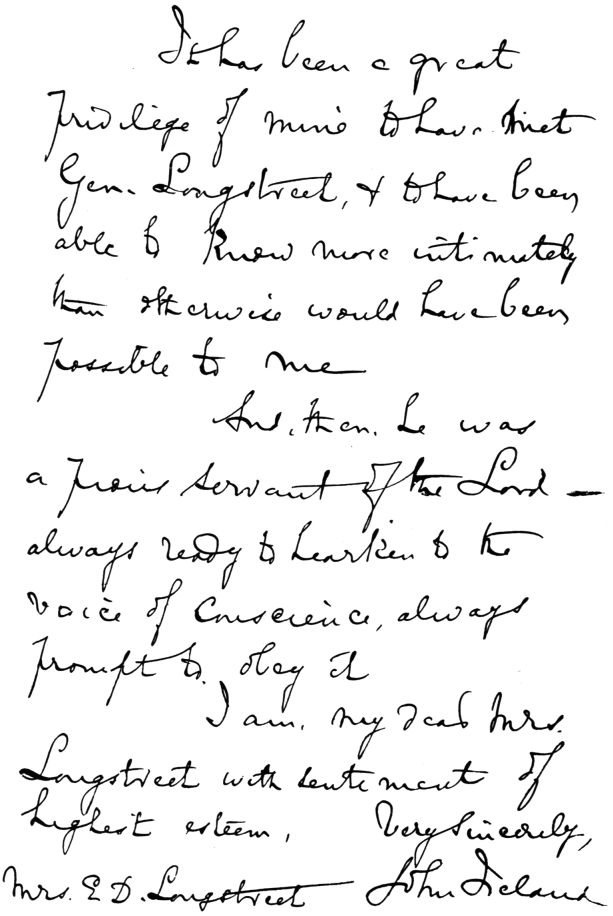 It has been a great
privilege of mine to have met
Gen. Longstreet, & to have been
able to know more intimately
than otherwise would have been
possible to me
And, then, he was
a pious servant of the Lord —
always ready to hearken to the
voice of conscience, always
prompt to obey it
I am, my dear Mrs.
Longstreet with sentiment of
highest esteem,
Very sincerely,
Mrs. E D. Longstreet
John Ireland